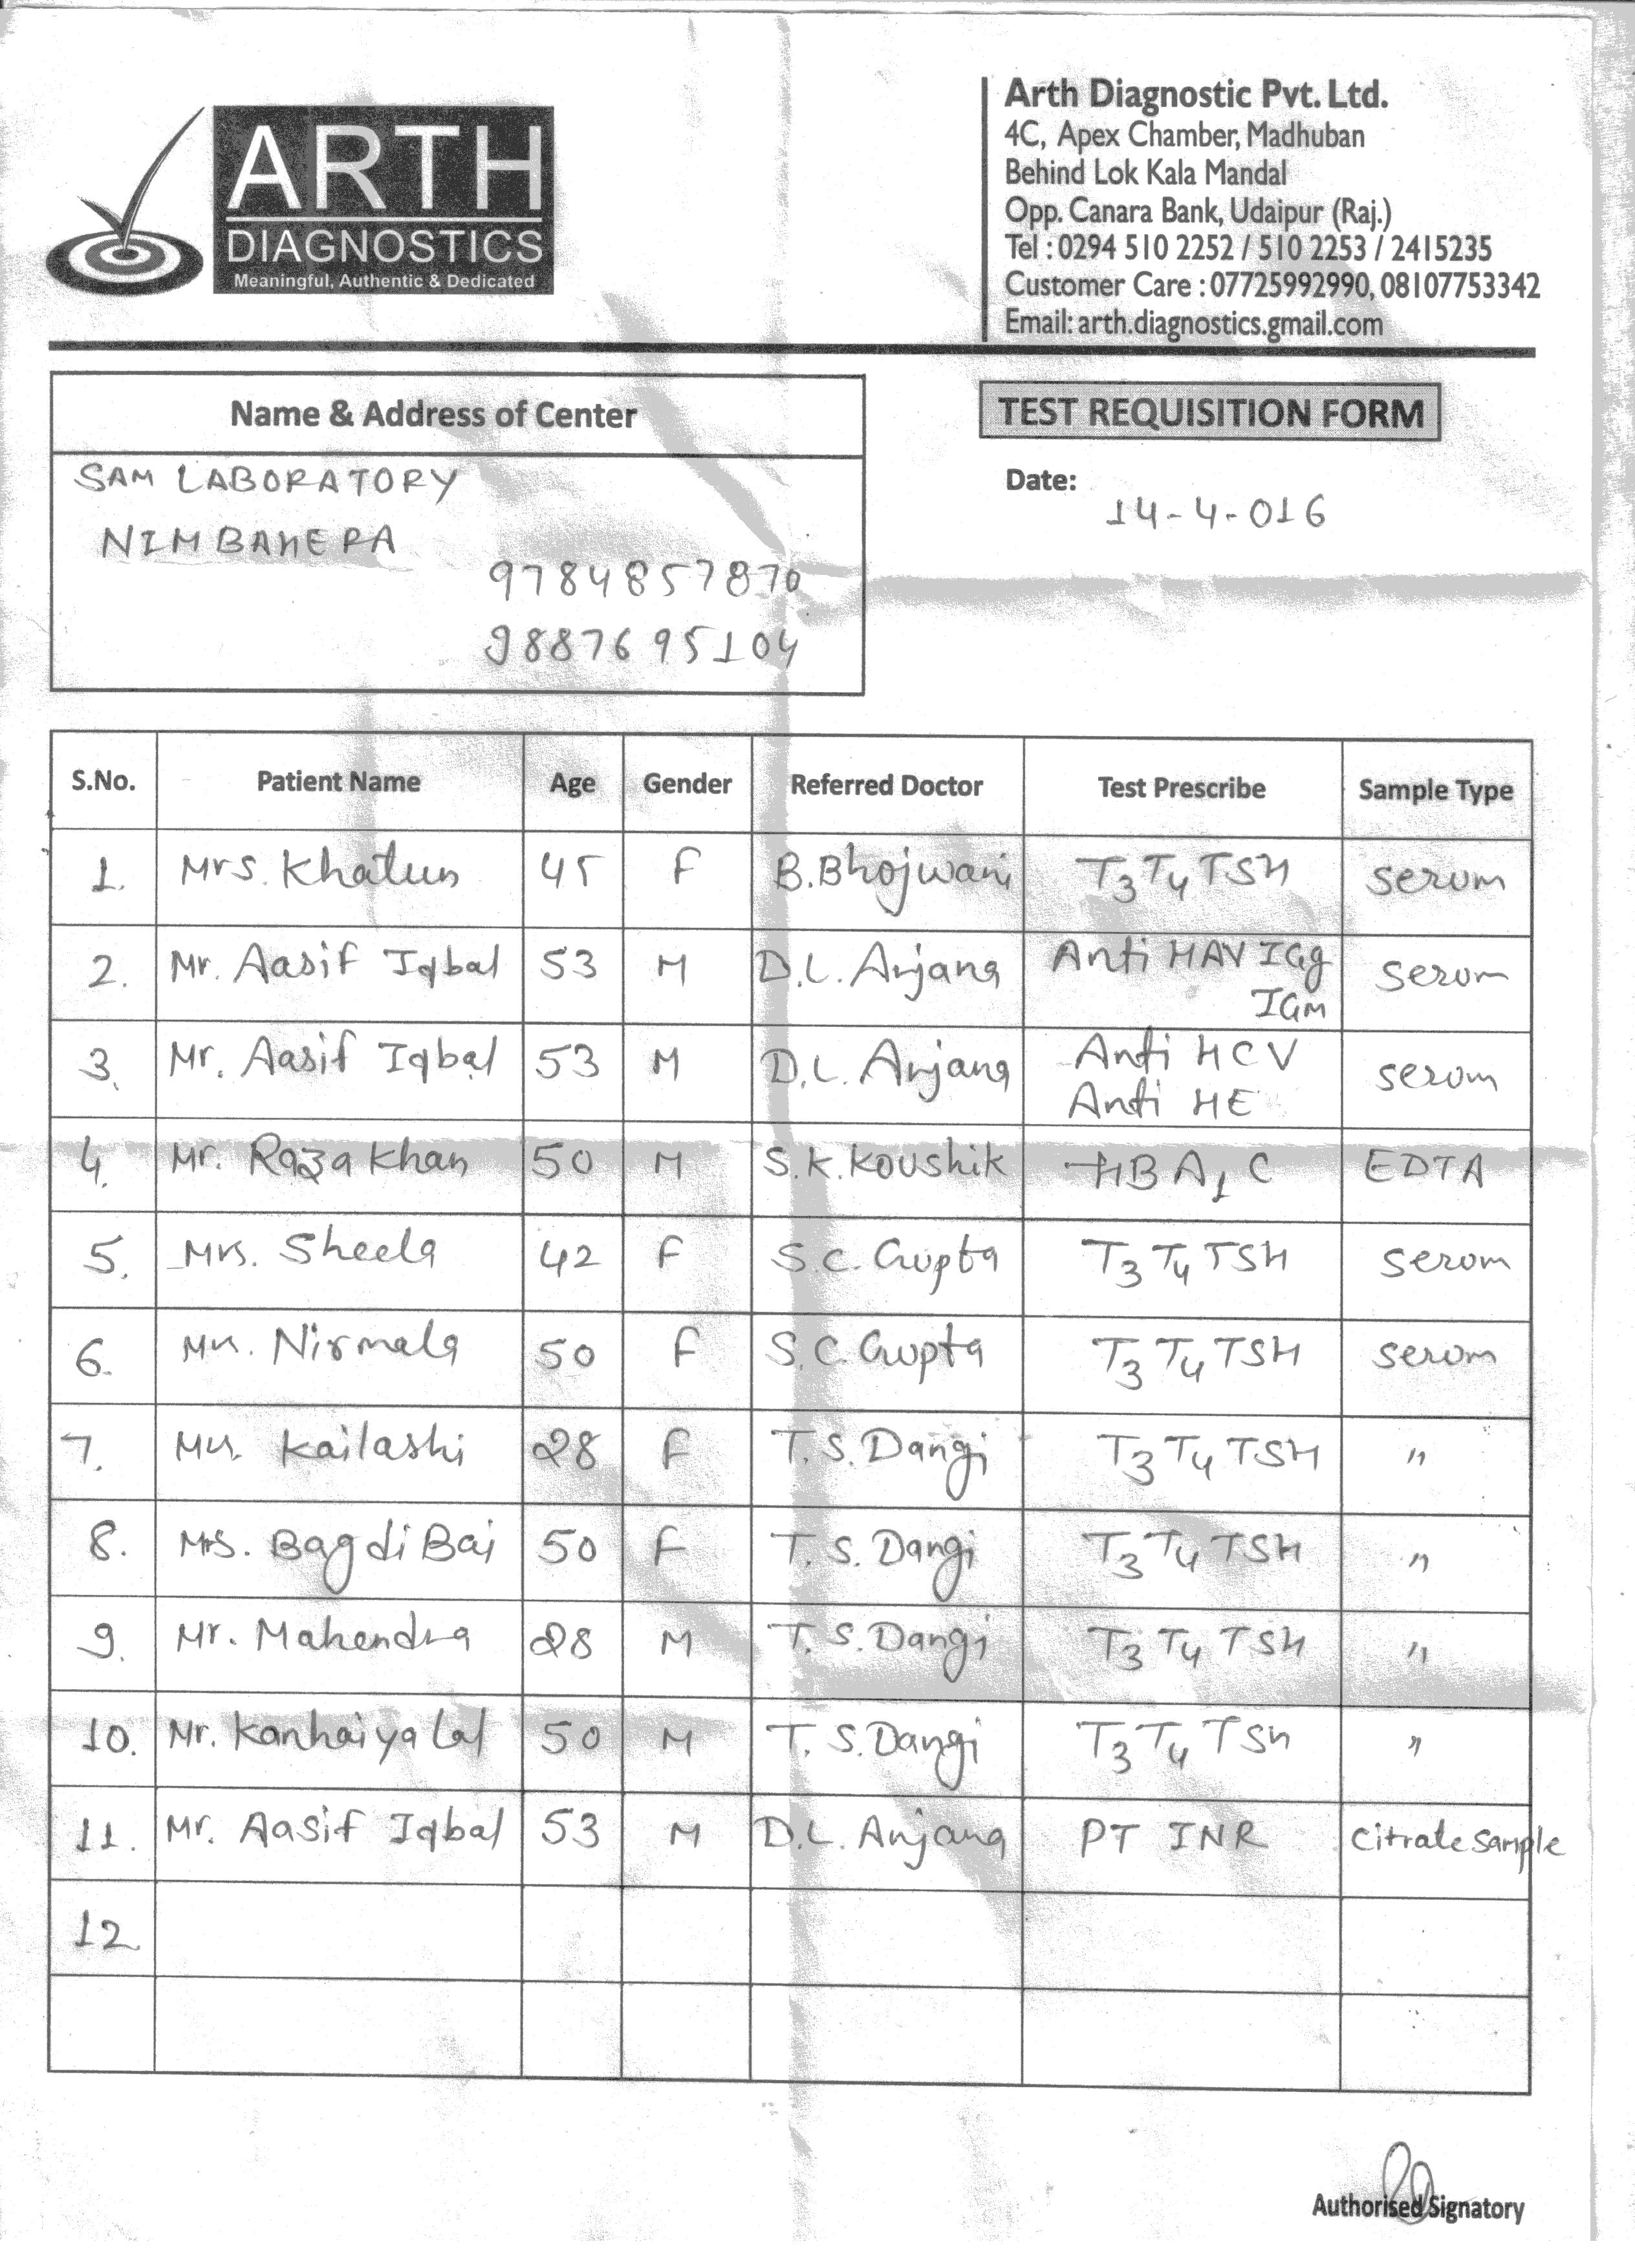 ARTH
DIAGNOSTICS
Meaningful, Authentic & Dedicated
Arth Diagnostic Pvt. Ltd.
4C, Apex Chamber, Madhuban
Behind Lok Kala Mandal
Opp. Canara Bank, Udaipur (Raj.)
Tel : 0294 510 2252 / 510 2253 / 2415235
Customer Care : 07725992990, 08107753342
Email: arth.diagnostics.gmail.com
Name & Address of Center
SAM LABORATORY
NIMBAHERA
9784857870
9887695104
TEST REQUISITION FORM
Date:
14-4-016
S.No. Patient Name Age Gender Referred Doctor Test Prescribe Sample Type
1. Mrs. Khatun 45 F B.Bhojwani T3 T4 TSH serum
2. Mr. Aasif Iqbal 53 M D.L. Anjana Anti HAV IGg IGM serum
3. Mr. Aasif Iqbal 53 M D.L. Anjana Anti HCV Anti HE serum
4. Mr. Raza Khan 50 M S.K. Koushik HBA1C EDTA
5. Mrs. Sheela 42 F S.C. Gupta T3 T4 TSH serum
6. Mrs. Nirmala 50 F S.C. Gupta T3 T4 TSH serum
7. Mrs. Kailashi 28 F T.S. Dangi T3 T4 TSH "
8. Mrs. Bagdi Bai 50 F T.S. Dangi T3 T4 TSH "
9. Mr. Mahendra 28 M T.S. Dangi T3 T4 TSH "
10. Mr. Kanhaiya Lal 50 M T.S. Dangi T3 T4 TSH "
11. Mr. Aasif Iqbal 53 M D.L. Anjana PT INR Citrate sample
12
Authorised Signatory